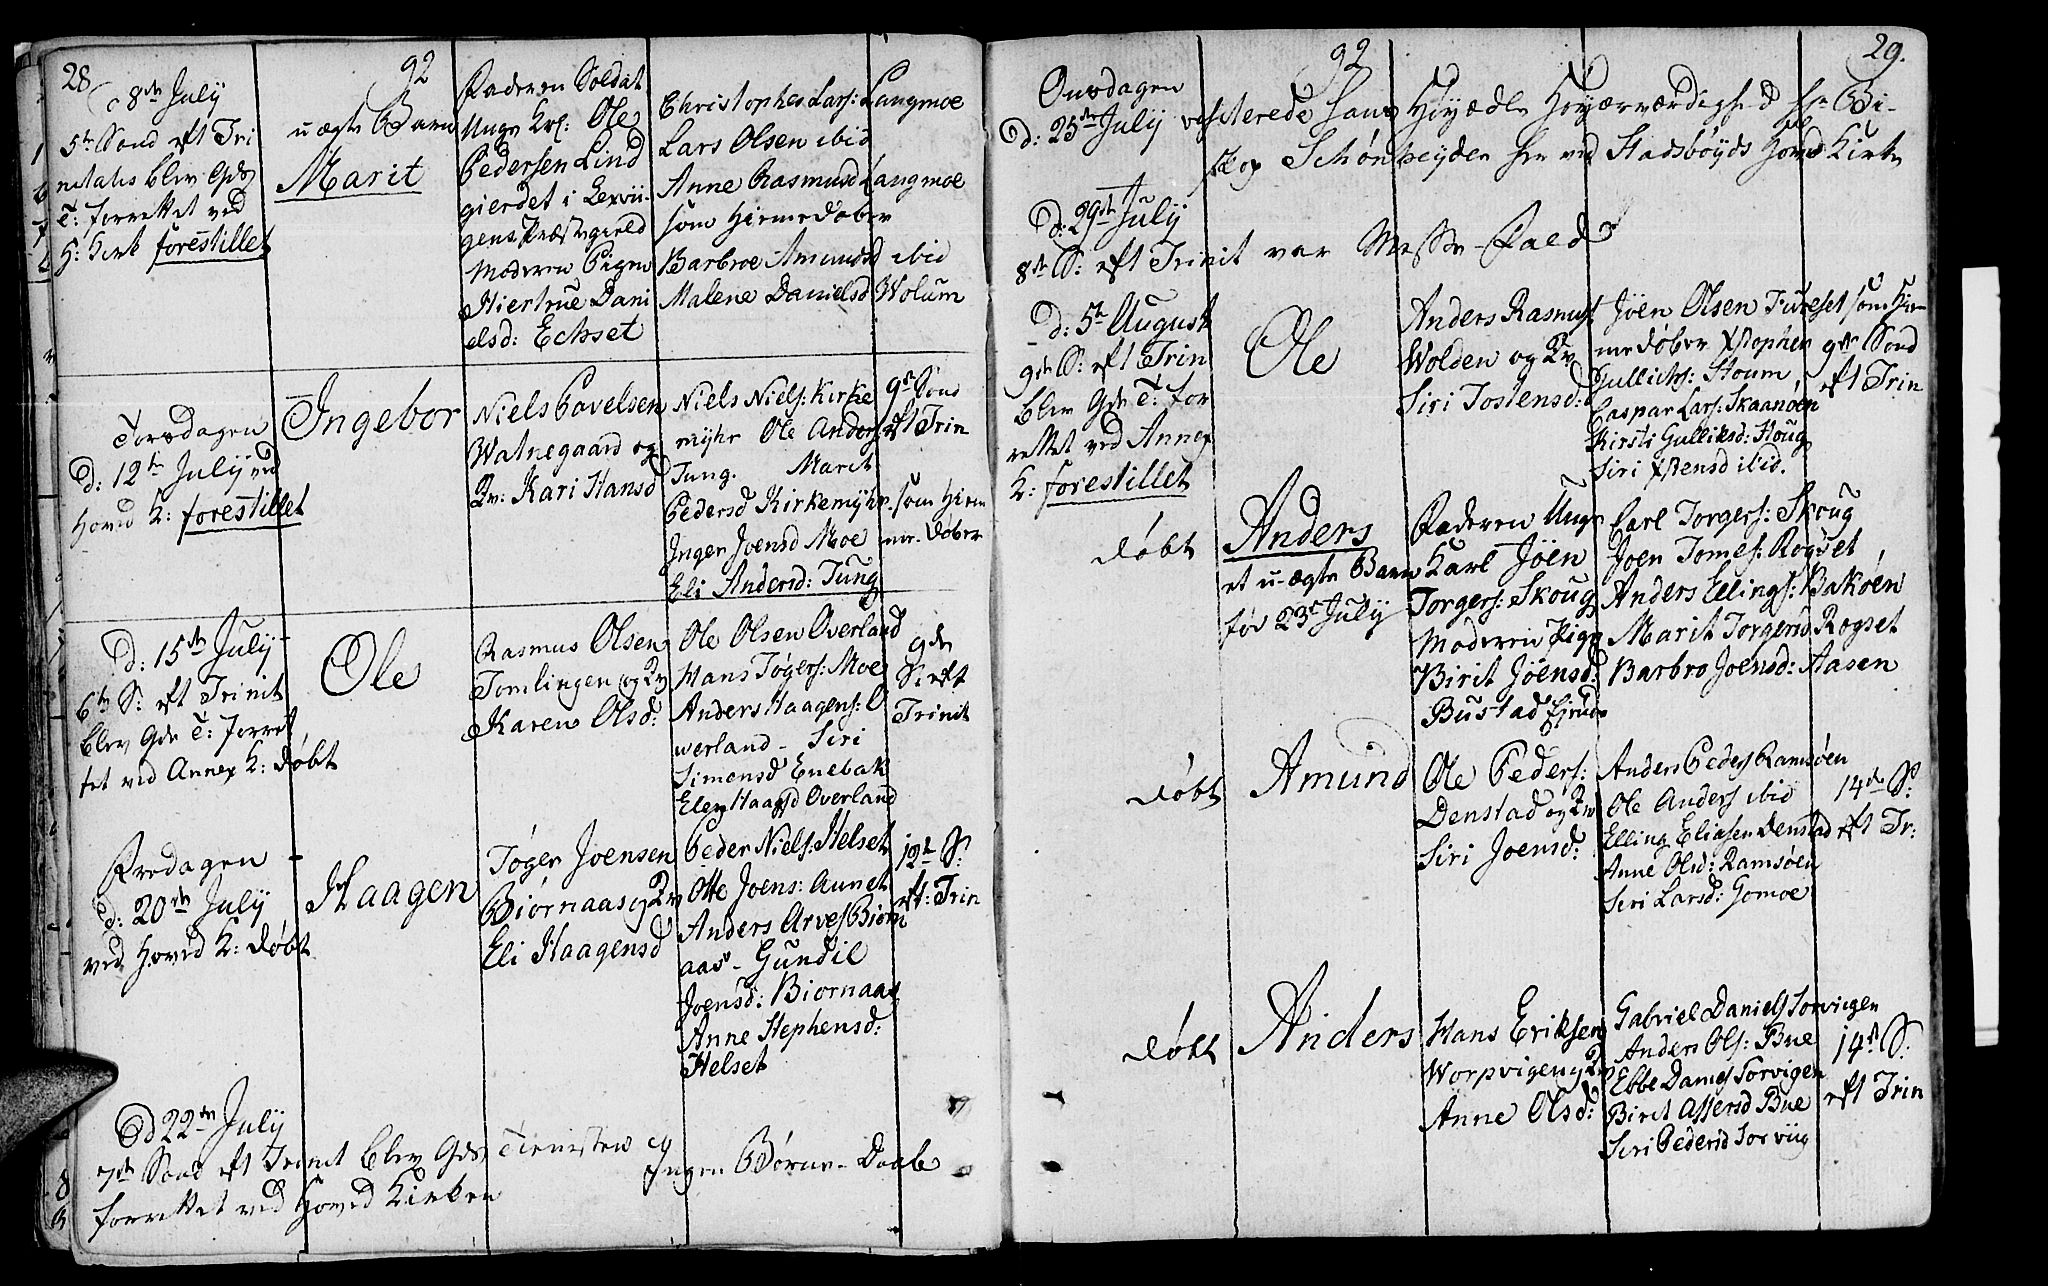 28
92
d 8de July
5te Sönd eft Tri
nitatis blev Gds
T: forrettet ved
H: Kirk forestillet
uægte Barn
Marit
Faderen Soldat
Unge Krl: Ole
Pedersen Lind
gierdet i Lexvii-
gens Præstegield
Moderen Pigen
Hiertrue Dani
elsd: Echset
Christopher Lars: Langmoe
Lars Olsen ibid
Anne Rasmusd Langmoe
som Hiemedøber
Barbroe Amundsd ibid
Malene Danielsd Wolum
Torsdagen
d: 12te July ved
Hovid K: forestillet
Ingebor
Niels Pavelsen
Watnegaard og
Kv: Kari Hansd
Niels Niels: Kirke
myhr Ole Anders:
Tung. Marit
Pedersd Kirkemyhr som Hiem
Inger Joensd Moe me-døber
Eli Andersd: Tung
9de Sönd
eft Trin
D: 15de July
6te S: eft Trinit
blev Gds T: forret
tet ved Annex K: døbt
Ole
Rasmus Olsen
Tomlingen og Kv
Karen Olsd:
Ole Olsen Overland
Hans Tøgers: Moe
Anders Haagens: O
werland - Siri
Simensd Enebak
Elen Haagsd Overland
9de
S: eft
Trinit
Fredagen
d: 20de July
ved Hovid K: døbt
Haagen
Tøger Joensen
Biørnaas og Kv
Eli Haagensd
Peder Niels: Helset
Otte Joens: Aunet
Anders Arves Biørn
aas - Gundil
Joensd: Biornaas
Anne Stephensd:
Helset
12te S:
eft: Trin
d 22de July
7de Sönd eft Trinit blev Gds Tienisten
forrettet ved Hoved Kirken
Ingen Børne-Daab
29.
92
Onsdagen
d: 25de July visiterede hans Høyædle Høyærværdighed Hr Bi-
skop Schønheyder her ved Stadsbøyds Hoved Kirke
D: 29de July
8de S: eft Trinit var Messe-Fald
D: 5te August
9de S: eft Trin
blev Gds T: for
rettet ved Annex
K: forestillet
Ole
Anders Rasmus:
Wolden og Kv
Siri Jostensd:
Jöen Olsen Tureset som Hie-
medøber Xstopher
Gullichs: Houm
Caspar Lars: Skaanøen
Kirsti Gulliksd: Houg
Siri Xstensd ibid.
9de Sönd
eft Trin
døbt
Anders
et u-ægte Barn
før 23de July
Faderen Unge
Karl Jöen
Torgers: Skoug
Moderen Pige
Birit Jöensd:
Bustad
Carl Torgers: Skoug
Joen Tomes: Rogset
Anders Ellings: Bakøen
Marit Torgersd Rogset
Barbro Joensd: Aasen
døbt
Amund
Ole Peders:
Denstad og Kv
Siri Joensd:
Anders Peders Ramsøen
Ole Anders ibid
Elling Eliasen Denstad
Anne Olsd: Ramsøen
Siri Larsd: Gomoe
14de S:
eft Tr:
døbt
Anders
Hans Eriksen
Worpvigen og Kv
Anne Olsd:
Gabriel Daniels Sorvigen
Anders Ols: Bue
Ebbe Daniels Sorvigen
Birit Assersd Bue
Siri Pedersd Sorviig
14de S:
eft Trin